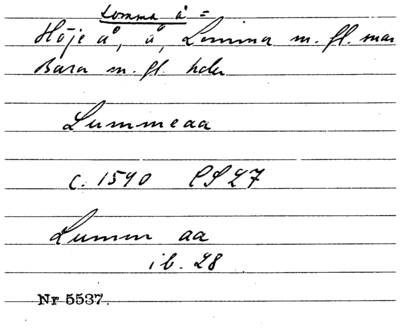 Lomma å =
Höje å, å, Lomma m. fl. snr
Bara m. fl. hdr
Lummeaa
c. 1590 PS 27
Lumm aa
ib. 28
Nr 5537.